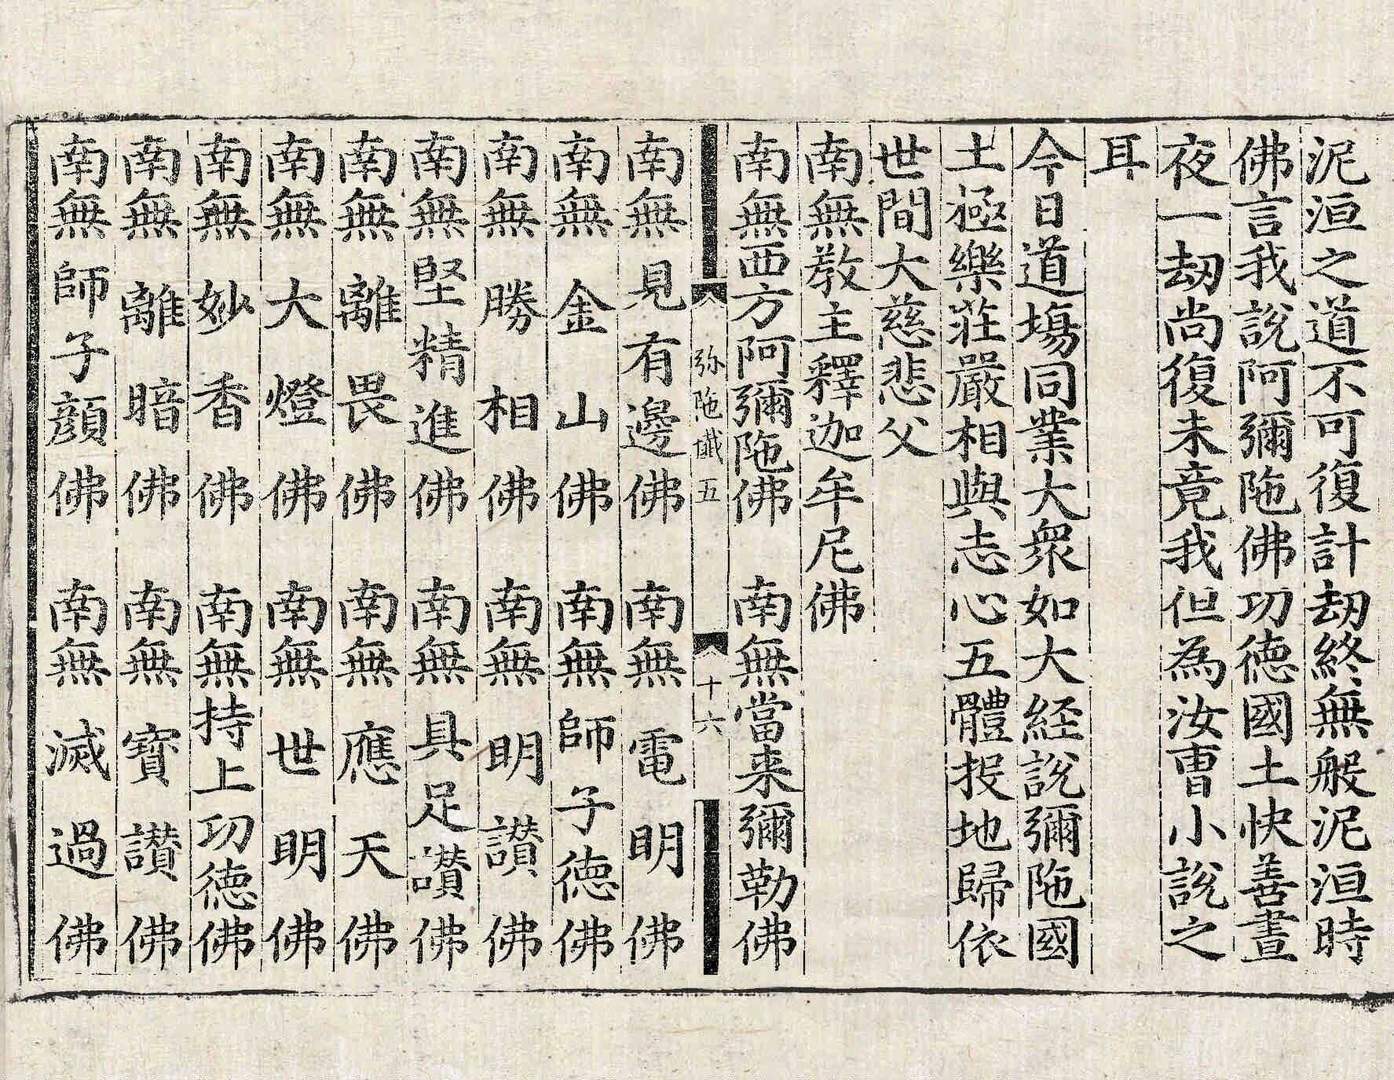 泥洹之道不可復計劫終無般泥洹時
佛言我說阿彌陁佛功德國土快善晝
夜一劫尚復未竟我但為汝曹小說之
耳
今日道塲同業大衆如大経說彌陁國
土極樂莊嚴相與志心五體投地歸依
世間大慈悲父
南無教主釋迦牟尼佛
南無西方阿彌陁佛　南無當来彌勒佛
弥陁懺五　十六
南無見有邊佛　南無電明佛
南無金山佛　南無師子德佛
南無勝相佛　南無明讃佛
南無堅精進佛　南無具足讃佛
南無離畏佛　南無應天佛
南無大燈佛　南無世明佛
南無妙香佛　南無持上功德佛
南無離暗佛　南無寶讃佛
南無師子顔佛　南無滅過佛